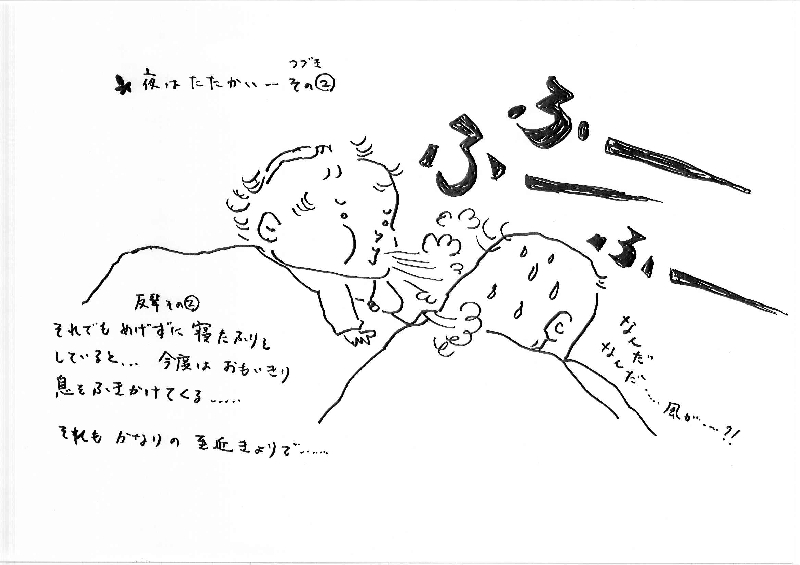 つづき
夜はたたかい… その②
ふー
ふー
ふー
反撃その②
それでもめげずに寝たふりを
していると… 今度はおもいきり
息をふきかけてくる……
それもかなりの至近きょりで……
なんだ
なんだ…… 風が……?!